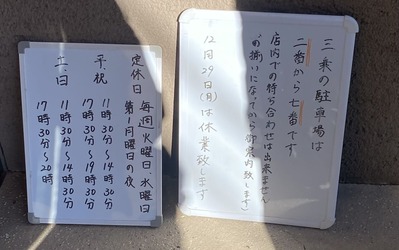 三乗の駐車場は
二番から七番です
店内での待ち合わせは出来ません
(お揃いになってから御案内致します)
12月29日(月)は休業致します
定休日 毎週火曜日、水曜日
第1月曜日の夜
平、祝 11時30分~14時30分
17時30分~19時30分
土、日 11時30分~14時30分
17時30分~20時